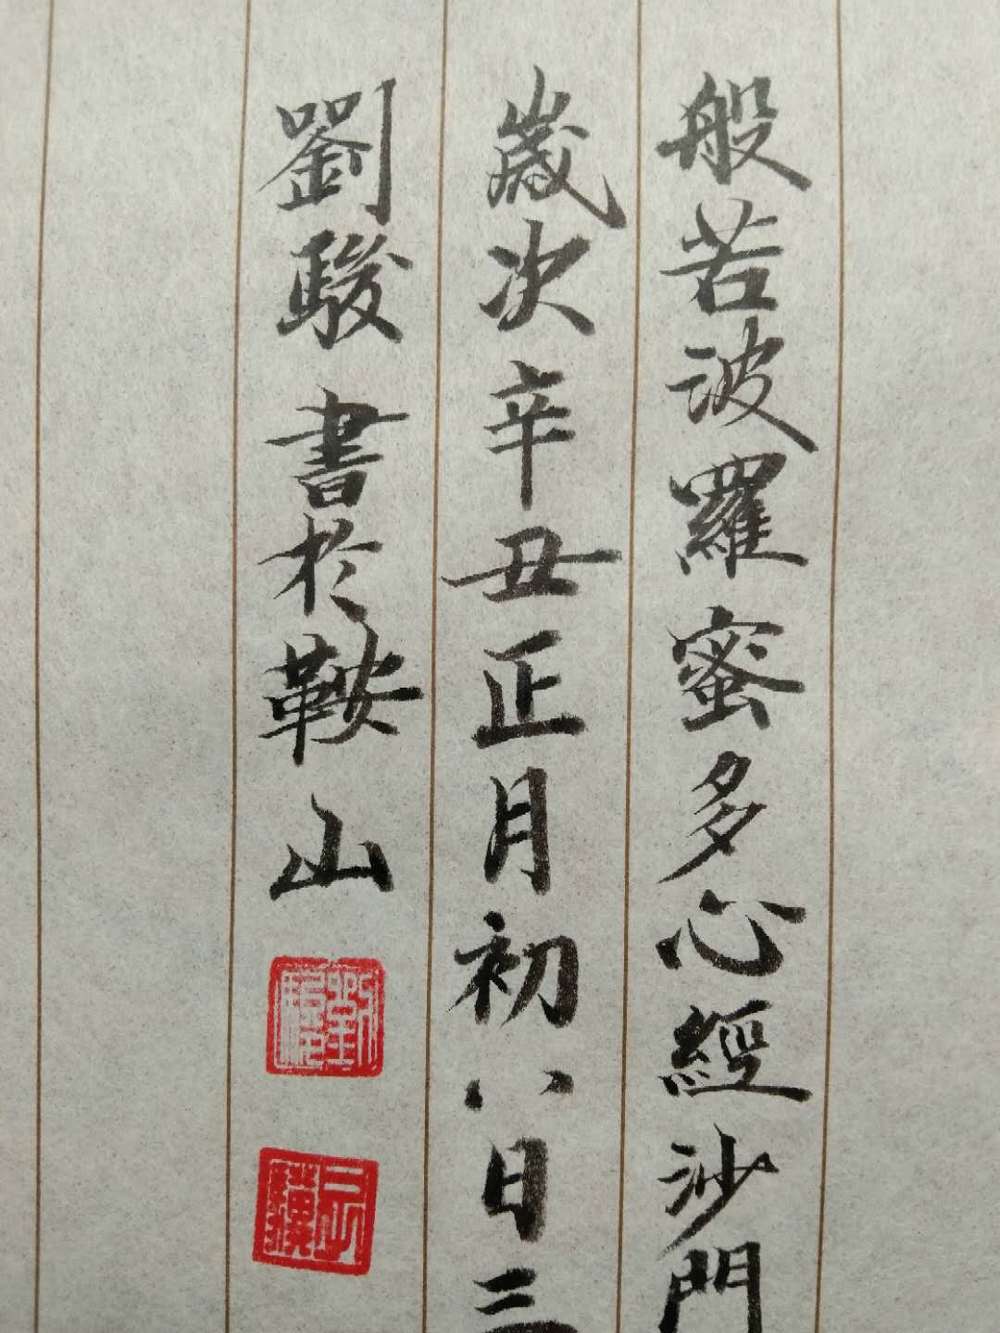 般若波羅蜜多心經沙門
歲次辛丑正月初八日三
劉駿書於鞍山
劉駿